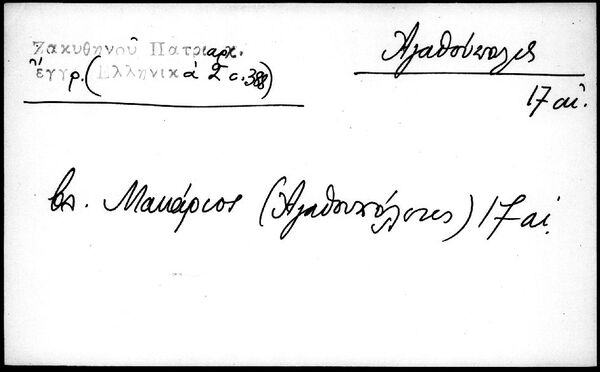 Ζακυθηνοῦ Πατριαρχ.
ἔγγρ. (Ἑλληνικὰ 2 σ. 388)
Ἀγαθούπολις
17 αἰ.
βλ. Μακάριος (Ἀγαθουπόλεως) 17 αἰ.